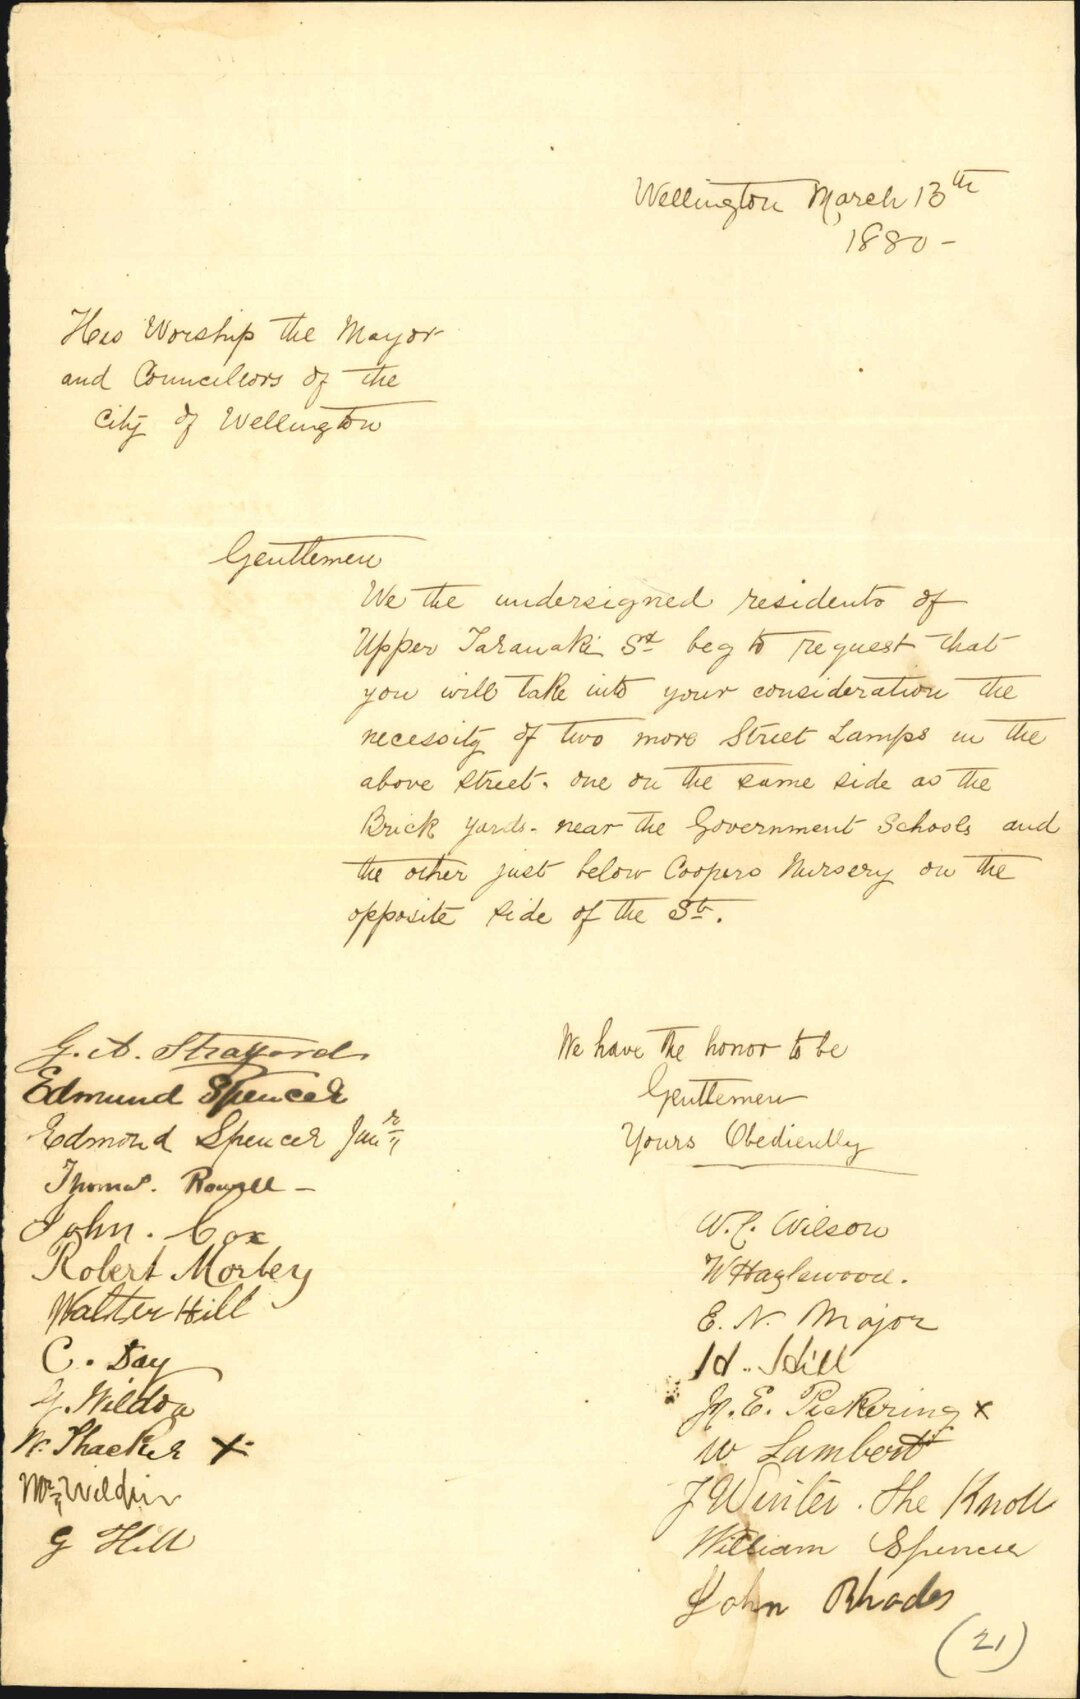 Wellington March 13th
1880-
His Worship the Mayor
and Councillors of the
City of Wellington
Gentlemen
We the undersigned residents of
Upper Taranaki St beg to request that
you will take into your consideration the
necessity of two more Street Lamps in the
above street. one on the same side as the
Brick yards. near the Government Schools and
the other just below Coopers Nursery on the
opposite side of the St.
We have the honor to be
Gentlemen
Yours Obediently
G. A. Strafford
Edmund Spencer
Edmond Spencer Junr
Thomas. Rowell -
John. Cox
Robert Morbey
Walter Hill
C. Day
Wildon
W. Thacker x
Mr Wildin
G Hill
W. C. Wilson
W Hazlewood.
E. N. Major
H. Hill
E. Pickering x
W Lambert
J Winter. The Knoll
William Spencer
John Rhodes
(21)